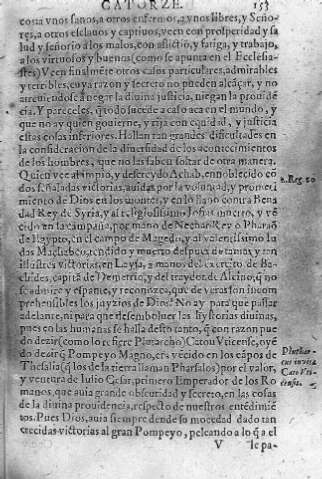 CATORZE. 153
costa vnos sanos, a otros enfermos, a vnos libres, y Seño-
res, a otros esclauos y captiuos, veen con prosperidad y sa
lud y señorio a los malos, con aflictiõ, y fatiga, y trabajo,
a los virtuosos y buenos (como se apunta en el Ecclesia-
stes) Veen finalmẽte otros casos particulares, admirables
y terribles, cuya razon y secreto no pueden alcãçar, y no
atreuiendose a negar la diuina justicia, niegan la prouidẽ
cia. Y pareceles, q̃ todo sucede a caso aca en el mundo, y
que no ay quien gouierne, y rija con equidad, y justicia
estas cosas inferiores. Hallan tan grandes dificultades en
la consideracion de la diuersidad de los acontecimientos
de los hombres, que no las saben soltar de otra manera.
Quien vee al impio, y descreydo Achab, ennoblecido cõ
dos señaladas victorias, auidas por la voluntad, y prometi
miento de Dios en los montes, y en lo llano contra Bena
dad Rey de Syria, y al religiosissimo Josias muerto, y vẽ
cido en la campaña, por mano de Nechao Rey o Pharaõ
de Egypto, en el campo de Magedo, y al valentissimo Iu
das Machabeo, rendido y muerto despues de tantas y tan
illustres victorias, en Laysa, a manos del exercito de Ba-
chides, capitã de Demetrio, y del traydor de Alcino, q̃ no
se admire y espante, y reconozca, que de veras son incom
prehensibles los juyzios de Dios? No ay para que passar
adelante, ni para que desemboluer las hystorias diuinas,
pues en las humanas se halla desto tanto, q̃ con razon pue
do dezir (como lo refiere Plutarcho) Caton Vticense, oyẽ
do dezir q̃ Pompeyo Magno, era vẽcido en los cãpos de
Thesalia (q̃ los de la tierra llaman Pharsalos) por el valor,
y ventura de Iulio Cesar, primero Emperador de los Ro
manos, que auia grande obscuridad y secreto, en las cosas
de la diuina prouidencia, respecto de nuestros entẽdimiẽ
tos. Pues Dios, auia siempre desde su mocedad dado tan
crecidas victorias al gran Pompeyo, peleando a lo q̃ a el
V le pa-
2. Reg. 20
Plutharcus in vita
Cato Vticensis.